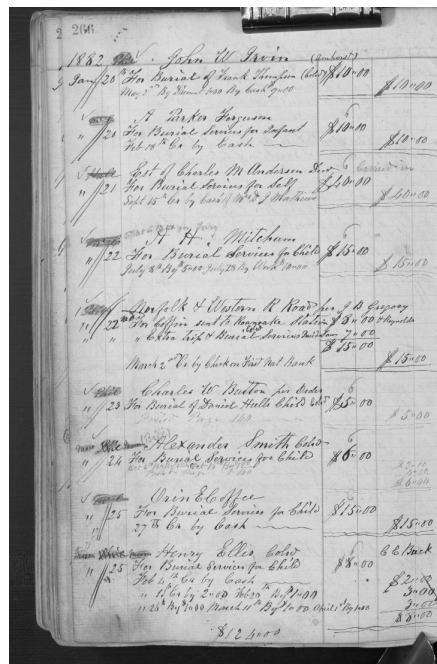 2 266
1882 John W. Irvin (Amherst)
Jan 20th For Burial of Frank Thompson (Cold) $10.00
By Cash 9.00 $10.00
A Parker Ferguson
" 20 For Burial Services for Infant $10.00
Feb 18th Cr by Cash $10.00
Est of Charles M Anderson Decd
" 21 For Burial Services for Self $40.00
Sept 15th Cr by Cash of Mathews $40.00
A. H. Mitcham
" 22 For Burial Services for Child $15.00
July 8th By 5.00 July 28 By Work 10.00 $15.00
Norfolk & Western R Road per J B Gregory
" 22nd For Coffin sent to Roanoke Station $8.00
" " " Extra trip & Burial Services 7.00
$15.00
March 2nd Cr by Check on First Nat Bank $15.00
Charles W Button per Order
" 23 For Burial of Daniel Hulls Child Cold $5.00
$5.00
Alexander Smith Cold
" 24 For Burial Services for Child $6.00
$6.00
Orin E Coffee
" 25 For Burial Services for Child $15.00
27th Cr by Cash $15.00
Henry Ellis, Cold
" 25 For Burial Services for Child $8.00 C C Back
Feb 4th Cr by Cash $2.00
" 18 Cr by 2.00 Feb 20th By 1.00 3.00
" 25th By 1.00 March 11th By 1.00 April 1st By 1.00 3.00
$8.00
$124.00